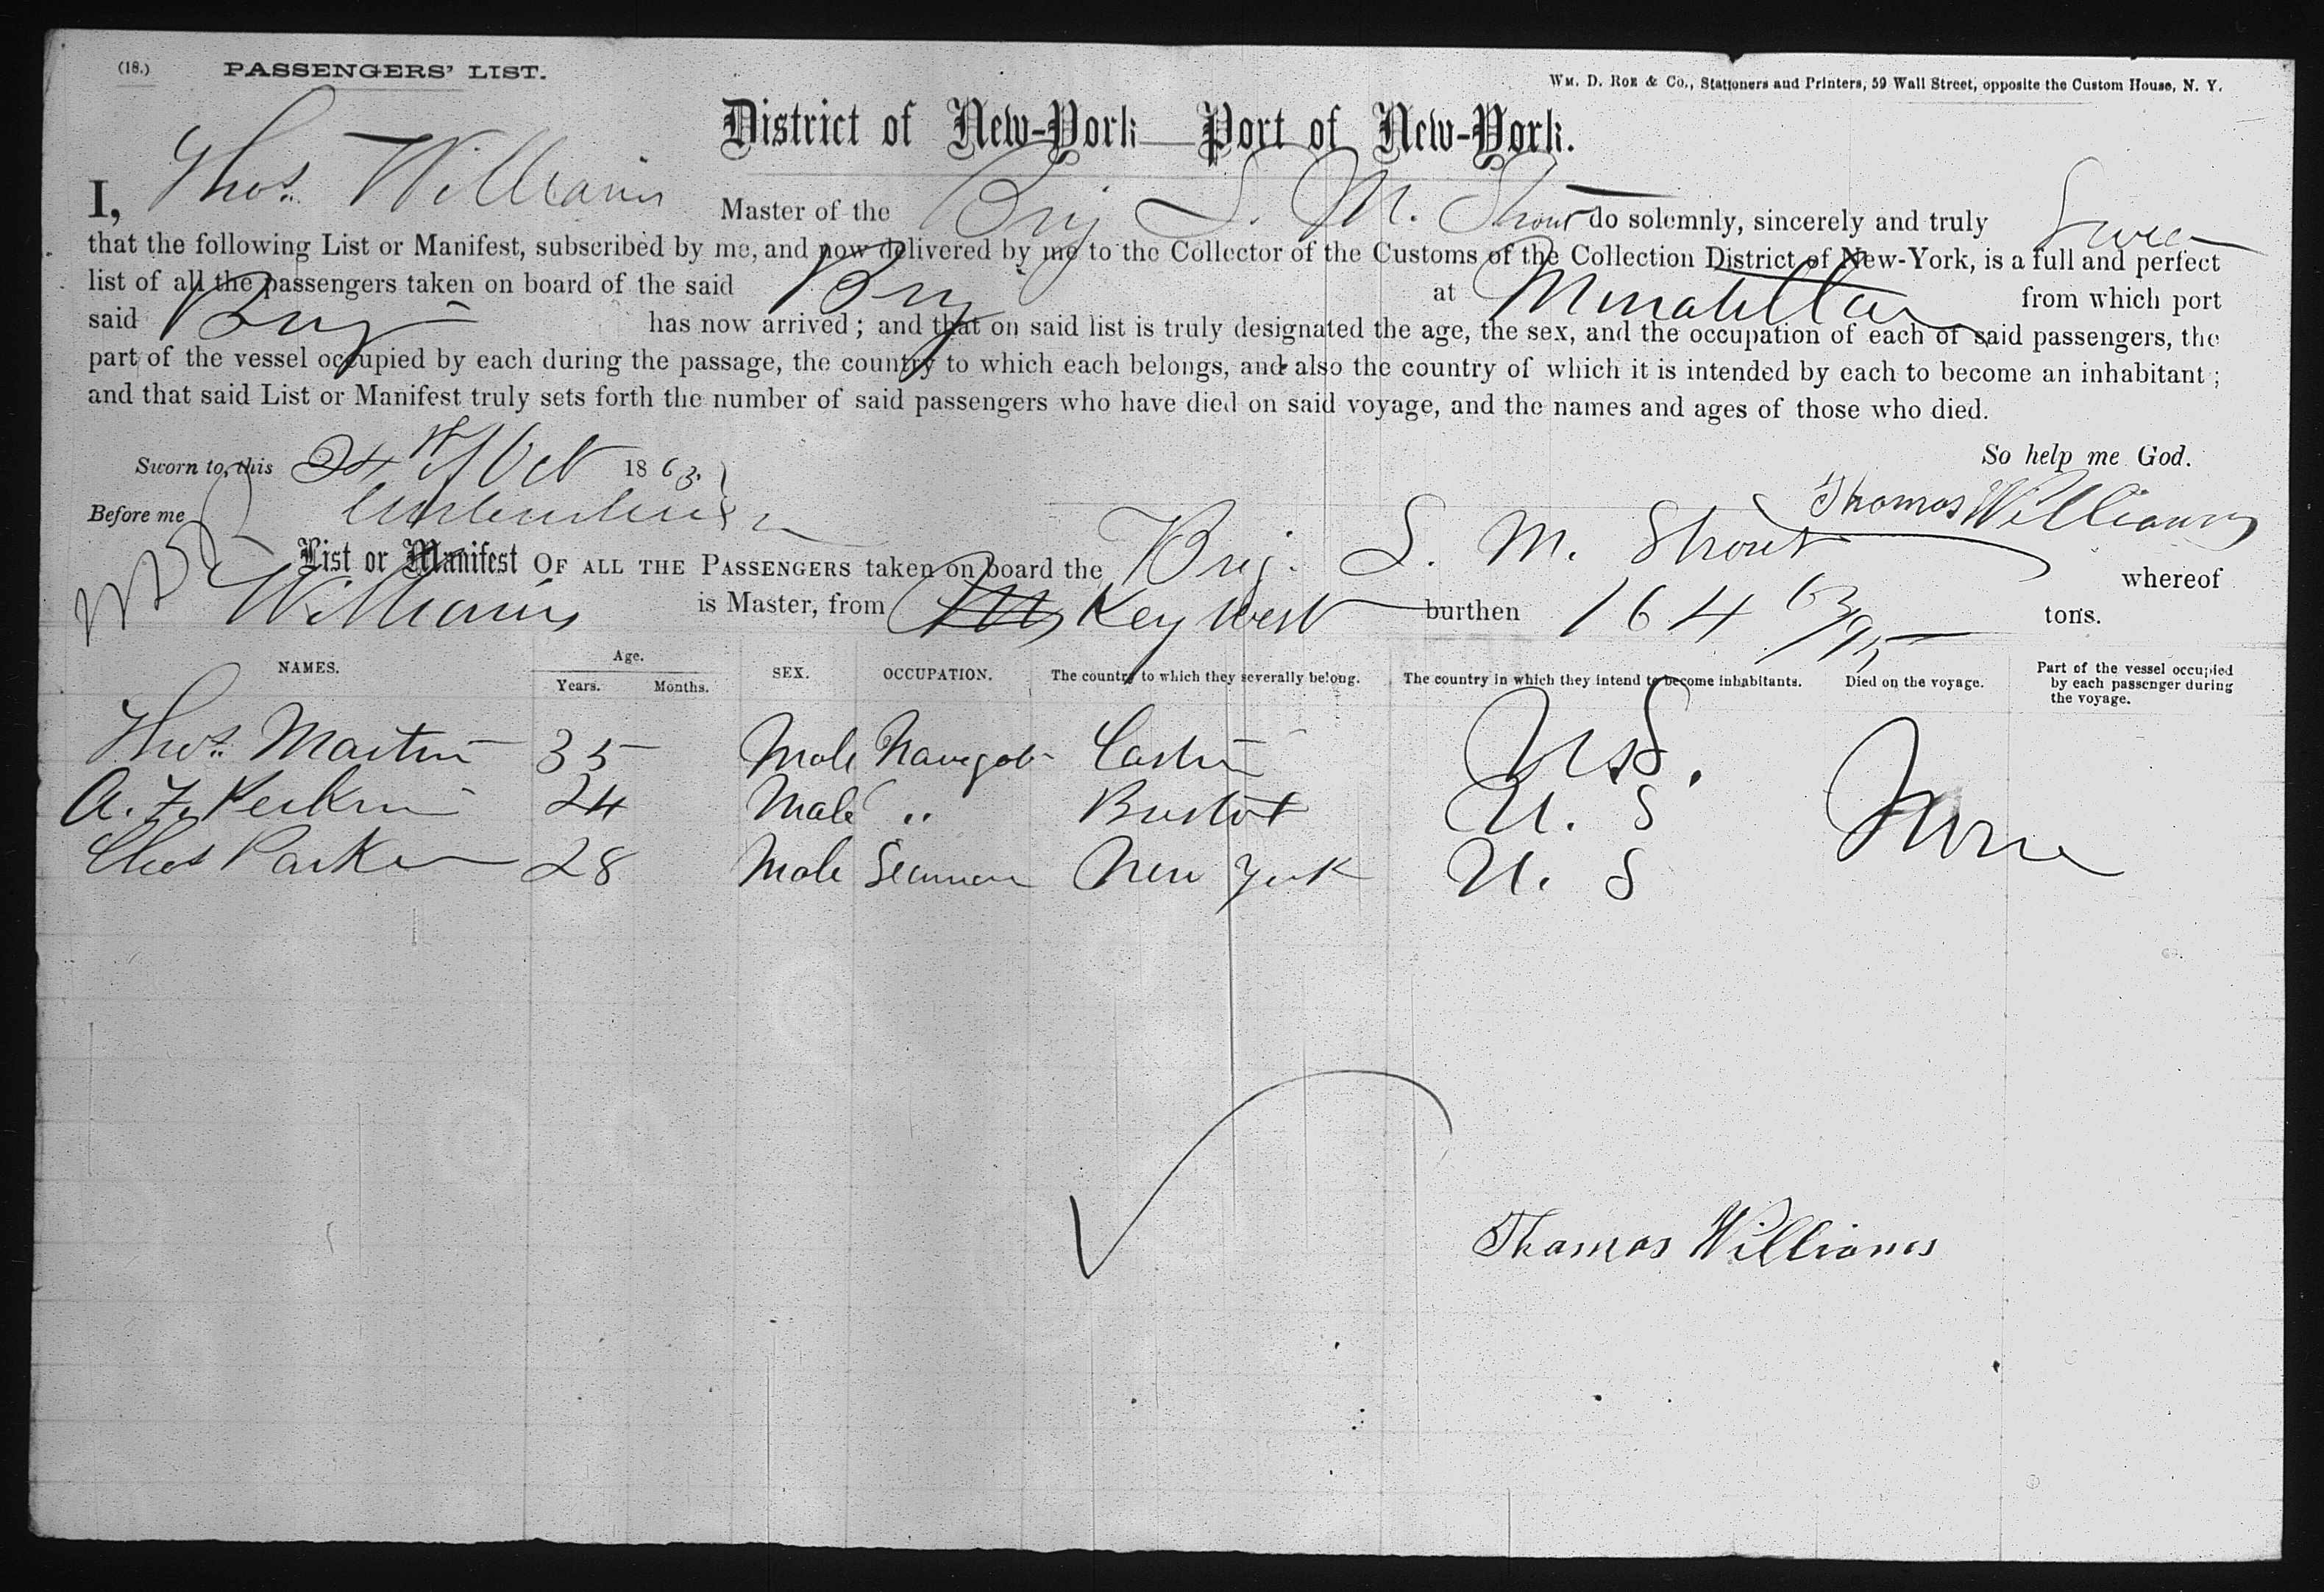 (18.) PASSENGERS' LIST.
WM. D. ROE & CO., Stationers and Printers, 59 Wall Street, opposite the Custom House, N. Y.
District of New-York—Port of New-York.
I, Thos. Williams Master of the Brig S. M. Strout do solemnly, sincerely and truly Swear
that the following List or Manifest, subscribed by me, and now delivered by me to the Collector of the Customs of the Collection District of New-York, is a full and perfect
list of all the passengers taken on board of the said Brig at from which port
said Brig has now arrived; and that on said list is truly designated the age, the sex, and the occupation of each of said passengers, the
part of the vessel occupied by each during the passage, the country to which each belongs, and also the country of which it is intended by each to become an inhabitant;
and that said List or Manifest truly sets forth the number of said passengers who have died on said voyage, and the names and ages of those who died.
So help me God.
Sworn to, this 24th Oct 1863.
Thomas Williams
Before me
List or Manifest OF ALL THE PASSENGERS taken on board the Brig. S. M. Strout whereof
Williams is Master, from Key West burthen 164 63/95 tons.
NAMES. Age. Years. Months. SEX. OCCUPATION. The country to which they severally belong. The country in which they intend to become inhabitants. Died on the voyage. Part of the vessel occupied by each passenger during the voyage.
Thos. Martin 35 Male Castin U.S.
A. F. Perkins 24 Male " U. S None
Chas Parker 28 Male Seaman New York U. S
Thomas Williams